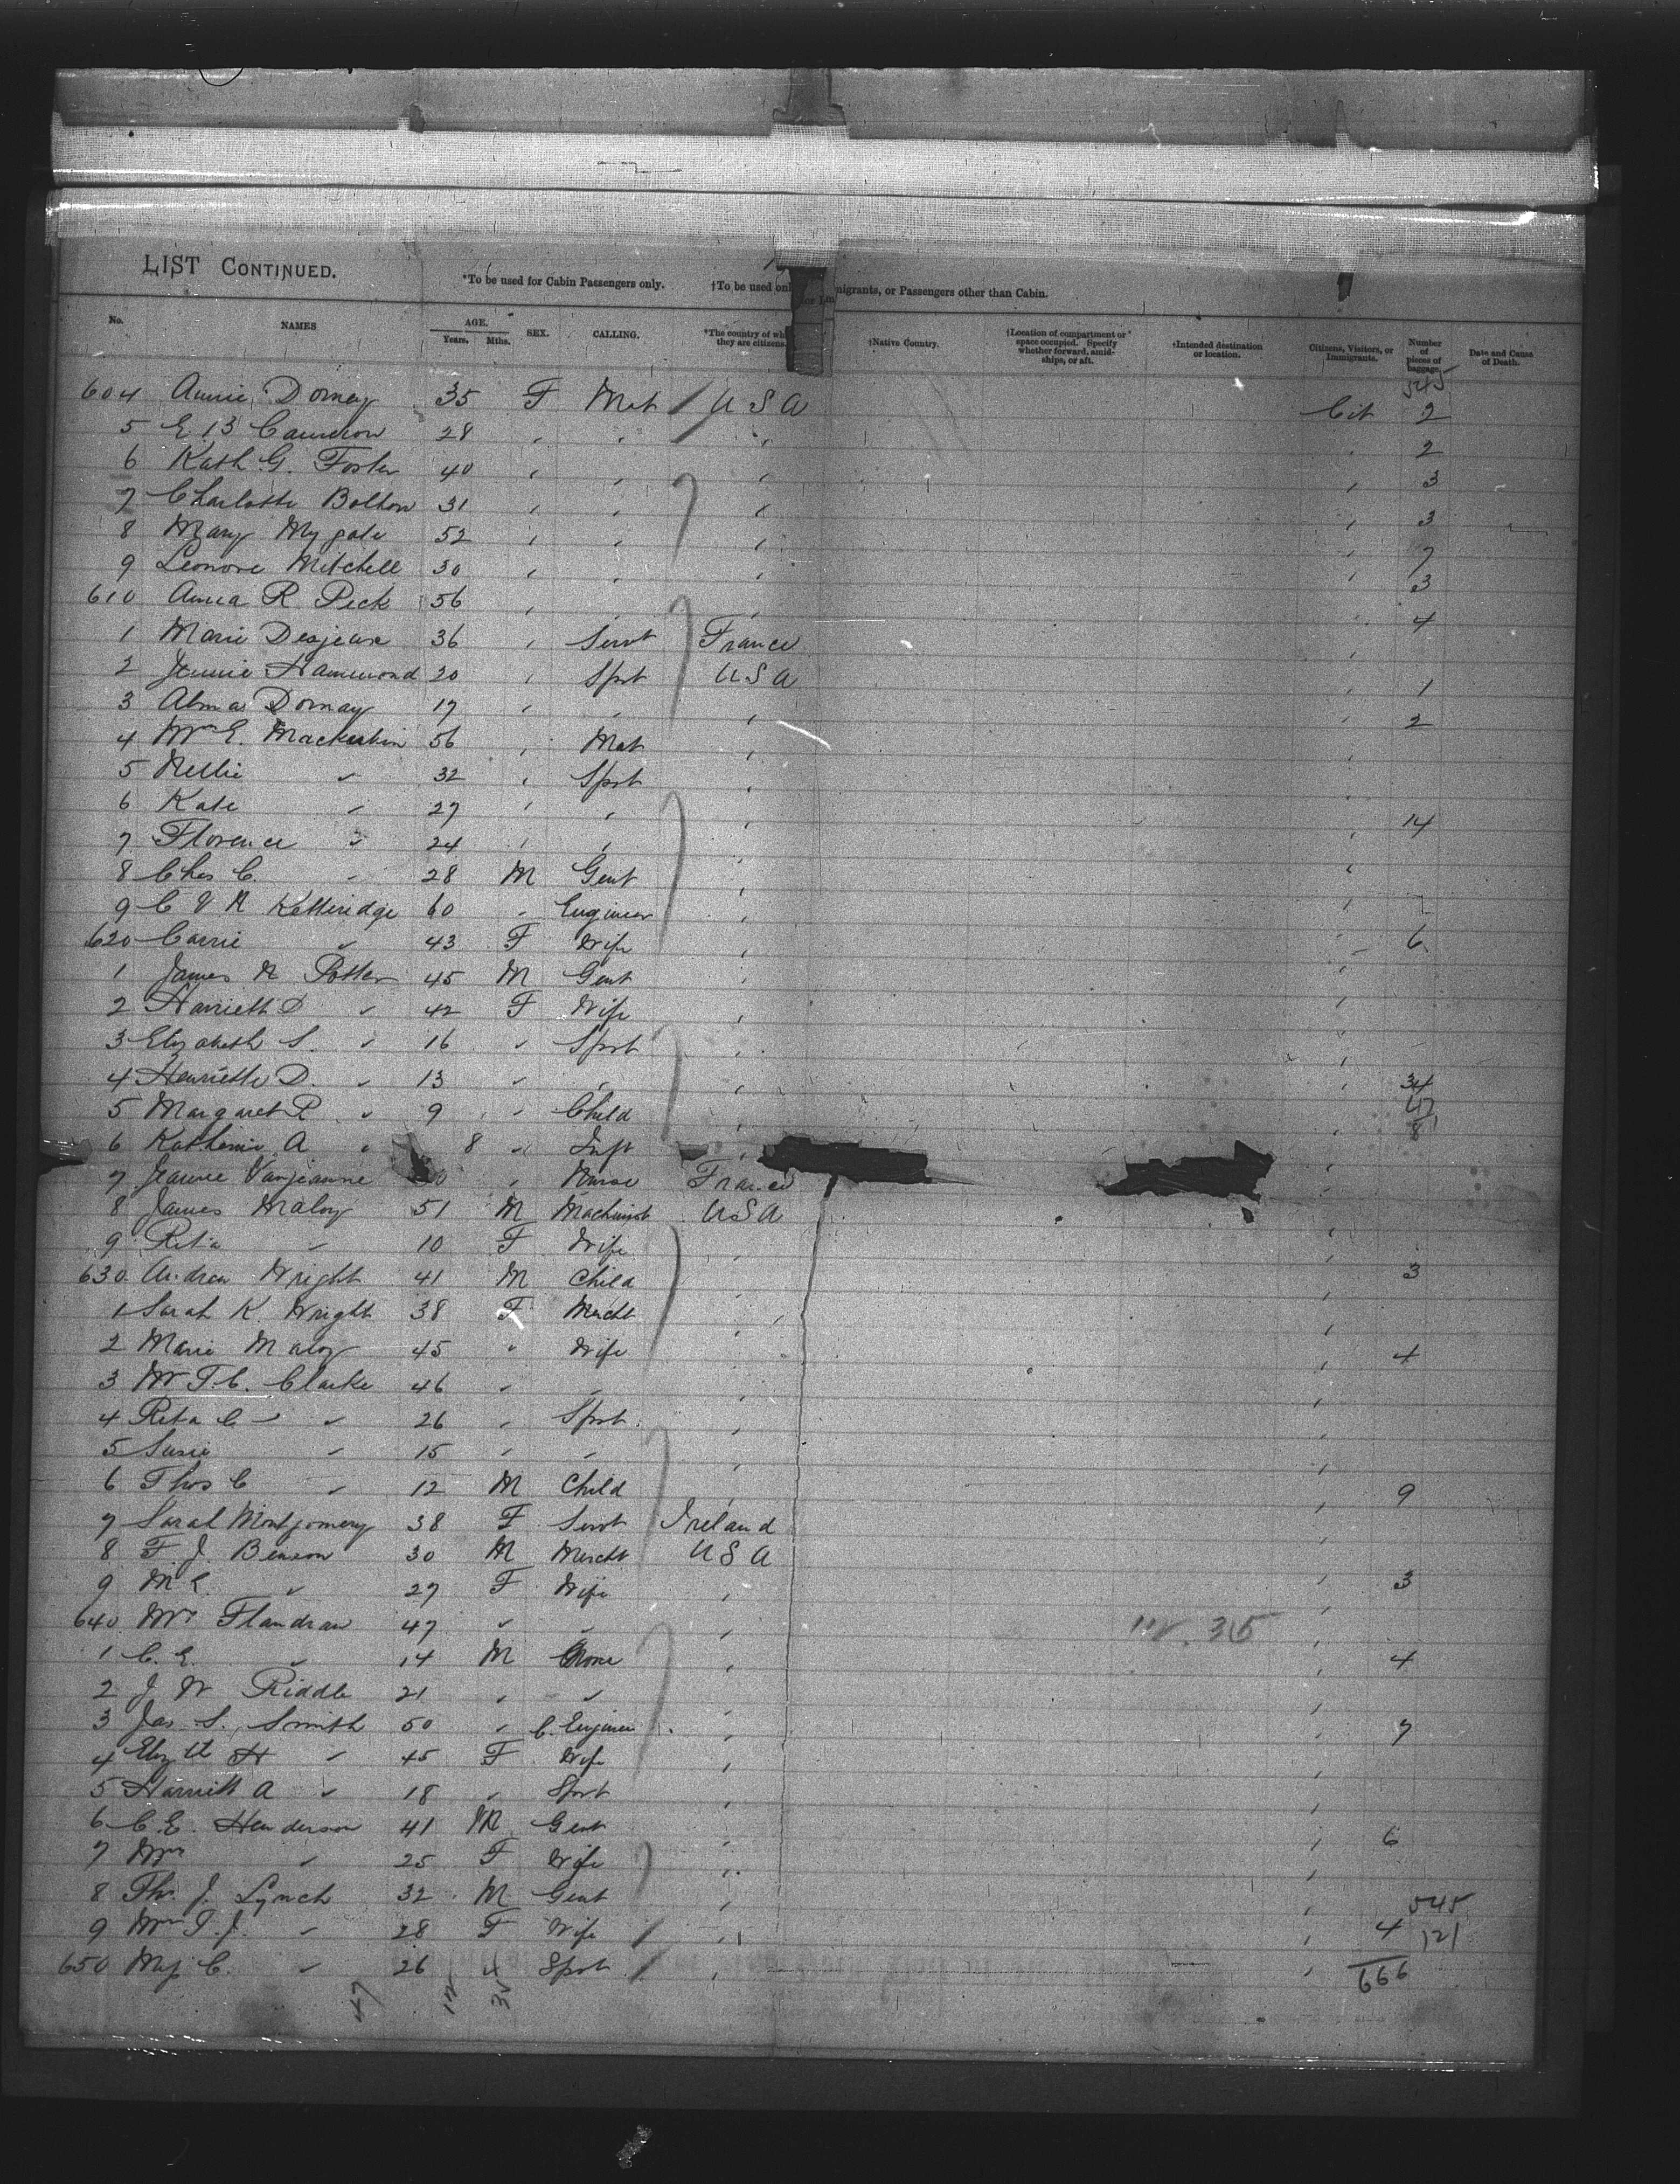 LIST CONTINUED.
*To be used for Cabin Passengers only. †To be used migrants, or Passengers other than Cabin.
No. NAMES AGE. Years. Mths. SEX. CALLING. *The country of they are citizens. †Native Country. †Location of compartment or space occupied. Specify whether forward, amid-ships, or aft. †Intended destination or location. Citizens, Visitors, or Immigrants. Number of pieces of baggage. Date and Cause of Death.
545
604 Annie Dornay 35 F Mat U S A Cit 2
5 E B Cameron 28 " " " " 2
6 Kath G. Foster 40 " " " " 3
7 Charlotte Bolton 31 " " " " 3
8 Mary Mygate 52 " " " " 7
9 Leonore Mitchell 30 " " " " 3
610 Anna R Peck 56 " " " " 4
1 Marie Desjeux 36 " Servt France "
2 Jennie Hammond 20 " Spst U S A " 1
3 Alma Dornay 17 " " " " 2
4 Mrs E. 56 " Mat " "
5 Nellie " 32 " Spst " "
6 Kate " 27 " " " " 14
7 Florence " 24 " " " "
8 Chas C. " 28 M Gent " "
9 C V R Ketteridge 60 " Engineer " "
620 Carrie " 43 F Wife " " 6
1 James N Potter 45 M Gent " "
2 Harriett D " 42 F Wife " "
3 Elizabeth S. " 16 " Spst " "
4 Henriette D. " 13 " " " " 34
5 Margaret R " 9 " Child " "
6 Katherine A " 8 " Inft " " 8
7 Jeanne Vanjeanne " Nurse France "
8 James Maloy 51 M Machinist U S A "
9 Reta " 10 F Wife " "
630 Andrew Wright 41 M Child " " 3
1 Sarah K. Wright 38 F Mercht " "
2 Marie Maloy 45 " Wife " " 4
3 Mrs T. C. Clarke 46 " " " "
4 Reta C " 26 " Spst " "
5 Susie " 15 " " " "
6 Thos C " 12 M Child " " 9
7 Sarah Montgomery 38 F Servt Ireland
8 F. J. Benson 30 M Mercht U S A "
9 M E. " 27 F Wife " " 3
640 Mrs Flandrau 47 " " " "
1 C. E. " 14 M None " " 4
2 J W Riddle 21 " " " "
3 Jas. S. Smith 50 " C. Engineer " " 7
4 Elizth H " 45 F Wife " "
5 Harriett A " 18 " Spst " "
6 C. E. Henderson 41 M Gent " " 6
7 Mrs " 25 F Wife " "
8 Th. J. Lynch 32 M Gent " " 545
9 Mrs T. J. " 28 F Wife " " 4 121
650 C. " 26 " Spst " " 666
47